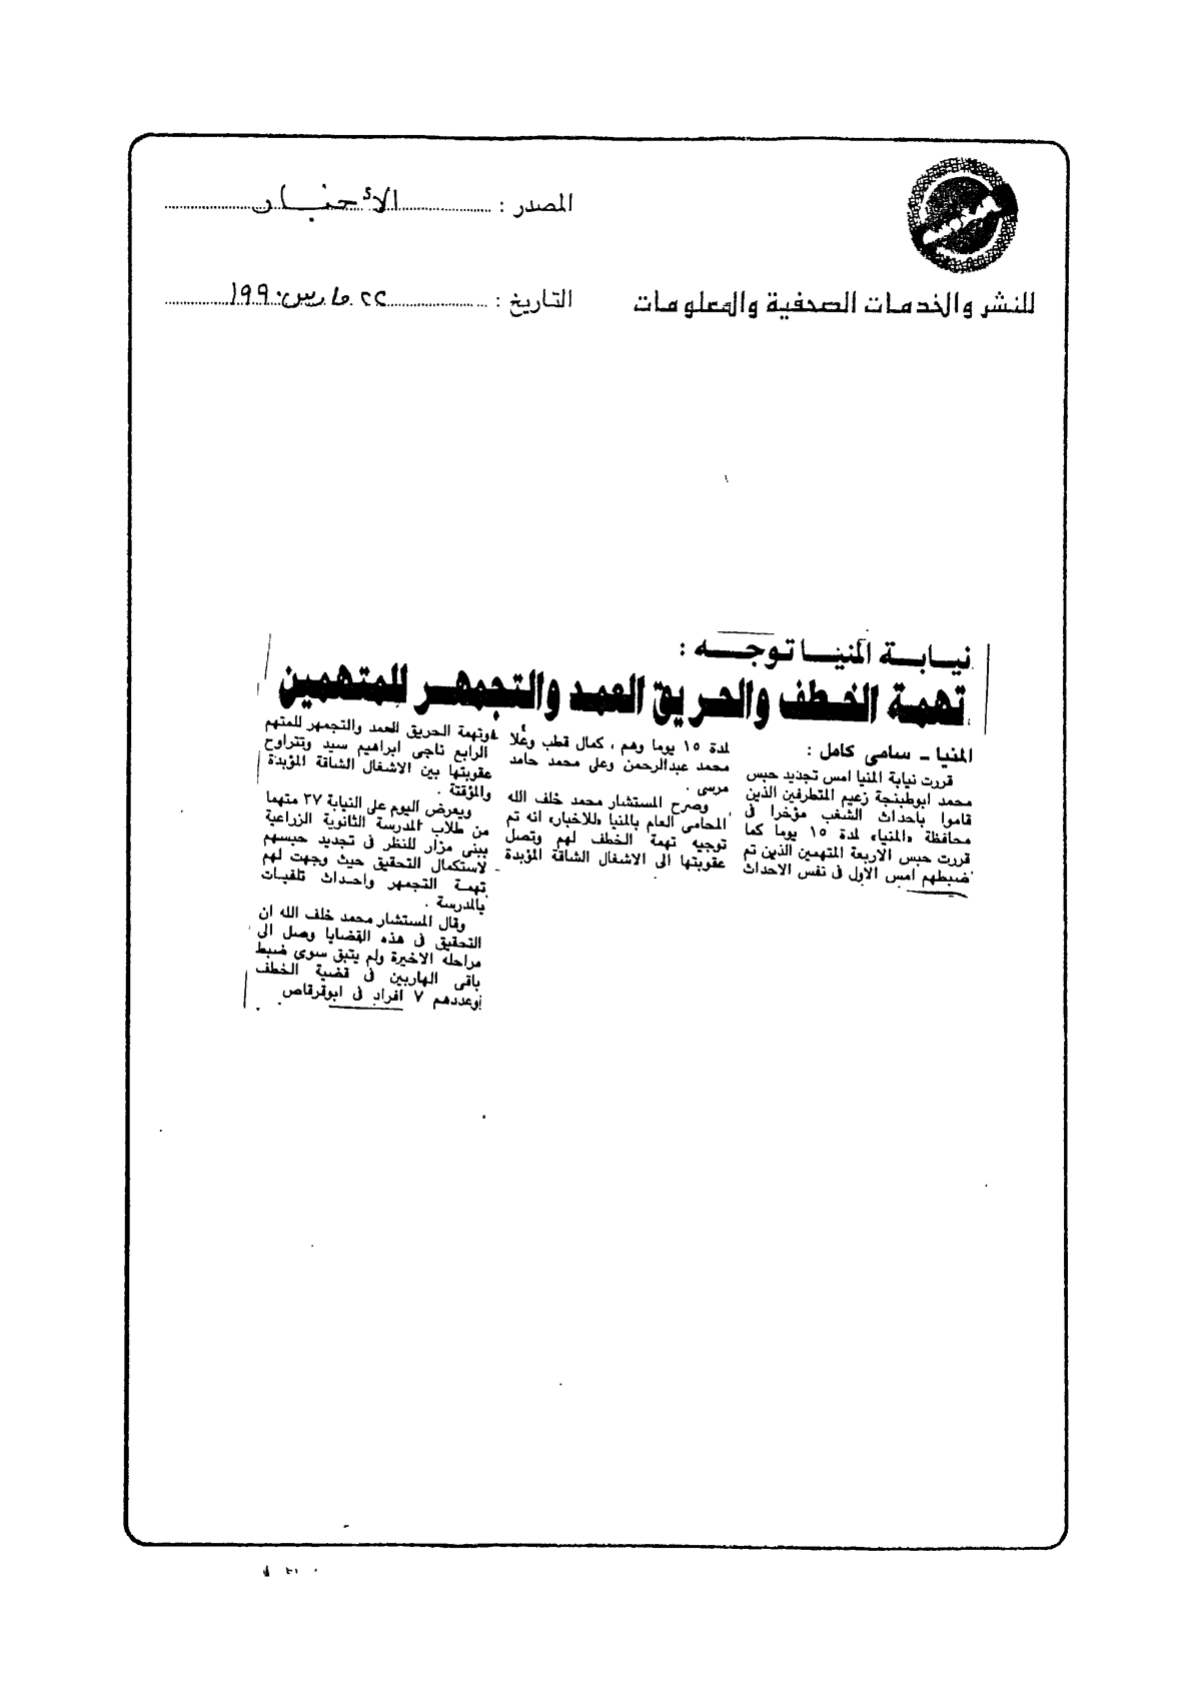 المصدر : الأخبار
للنشر والخدمات الصحفية والمعلومات
التاريخ : ٢٢ مارس ١٩٩٠
نيابة المنيا توجه :
تهمة الخطف والحريق العمد والتجمهر للمتهمين
المنيا ـ سامى كامل :
قررت نيابة المنيا امس تجديد حبس
محمد ابوطبنجة زعيم المتطرفين الذين
قاموا باحداث الشغب مؤخرا فى
محافظة «المنيا» لمدة ١٥ يوما كما
قررت حبس الاربعة المتهمين الذين تم
ضبطهم امس الاول فى نفس الاحداث
لمدة ١٥ يوما وهم ، كمال قطب وعلا
محمد عبدالرحمن وعلى محمد حامد
مرسى .
وصرح المستشار محمد خلف الله
المحامى العام بالمنيا «للاخبار» انه تم
توجيه تهمة الخطف لهم وتصل
عقوبتها الى الاشغال الشاقة المؤبدة
وتهمة الحريق العمد والتجمهر للمتهم
الرابع ناجى ابراهيم سيد وتتراوح
عقوبتها بين الاشغال الشاقة المؤبدة
والمؤقتة .
ويعرض اليوم على النيابة ٣٧ متهما
من طلاب المدرسة الثانوية الزراعية
ببنى مزار للنظر فى تجديد حبسهم
لاستكمال التحقيق حيث وجهت لهم
تهمة التجمهر واحداث تلفيات
بالمدرسة .
وقال المستشار محمد خلف الله ان
التحقيق فى هذه القضايا وصل الى
مراحله الاخيرة ولم يتبق سوى ضبط
باقى الهاربين فى قضية الخطف
وعددهم ٧ افراد فى ابوقرقاص